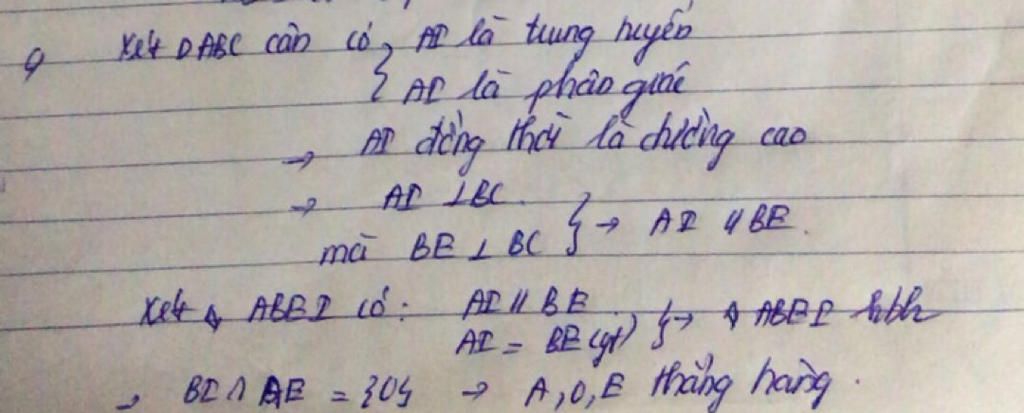 c, Xét △ABC cân có, AI là trung tuyến
{ AI là phân giác
→ AI đồng thời là đường cao
→ AI ⊥ BC
mà BE ⊥ BC } → AI // BE.
Xét ◊ ABEI có: AI // BE
AI = BE (gt) } → ◊ ABEI hbh
→ BI ∩ AE = {O} → A, O, E thẳng hàng.